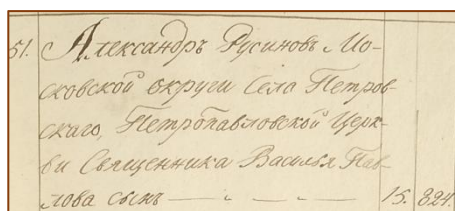 51. Александръ Русиновъ Мо-
сковской округи Села Петров-
скаго, Петропавловской Церк-
ви Священника Василья Пав-
лова сынъ — „ — „ — 15. 824.